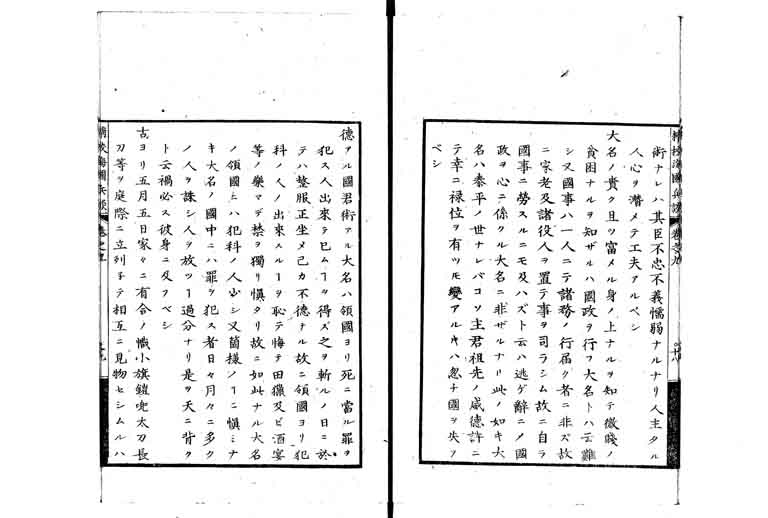 精校海國兵談 卷之九 十八
術ナレハ其臣不忠不義懦弱ナルナリ人主タル
人心ヲ潜メテ工夫アルベシ
大名ノ貴ク且ツ富メル身ノ上ナルヲ知テ微賤ノ
貧困ナルヲ知ザルハ國政ヲ行フ大名トハ云難
シ又國事ハ一人ニテ諸務ノ行届ク者ニ非ズ故
ニ家老及諸役人ヲ置テ事ヲ司ラシム故ニ自ラ
國事ニ勞スルニモ及ハズト云ハ逃ゲ辭ニノ國
政ヲ心ニ係クル大名ニ非ザルナリ此ノ如キ大
名ハ泰平ノ世ナレバコソ主君祖先ノ威德許ニ
テ幸ニ禄位ヲ有ツモ變アルキハ忽ナ國ヲ失フ
ベシ
德アル國君術アル大名ハ領國ヨリ死ニ當ル罪ヲ
犯ス人出來テ已ムヿヲ得ズ之ヲ斬ルノ日ニ於
テハ整服正坐メ己カ不德ナル故ニ領國ヨリ犯
科ノ人ノ出來スルヿヲ恥テ悔テ田獵及ビ酒宴
等ノ樂マデ禁ヲ獨リ愼タリ故ニ如此ナル大名
ノ領國ニハ犯科ノ人少シ又箇樣ノヿニ愼ミナ
キ大名ノ國中ニハ罪ヲ犯ス者日々月々ニ多ク
ノ人ヲ誅シ人ヲ放ツヿ過分ナリ是ヲ天ニ背ク
ト云禍必ス彼身ニ及フベシ
古ヨリ五月五日家々ニ有合ノ幟小旗鎧兜太刀長
刀等ヲ庭際ニ立列子テ相互ニ見物セシムルハ
精校海國兵談 卷之九 十九